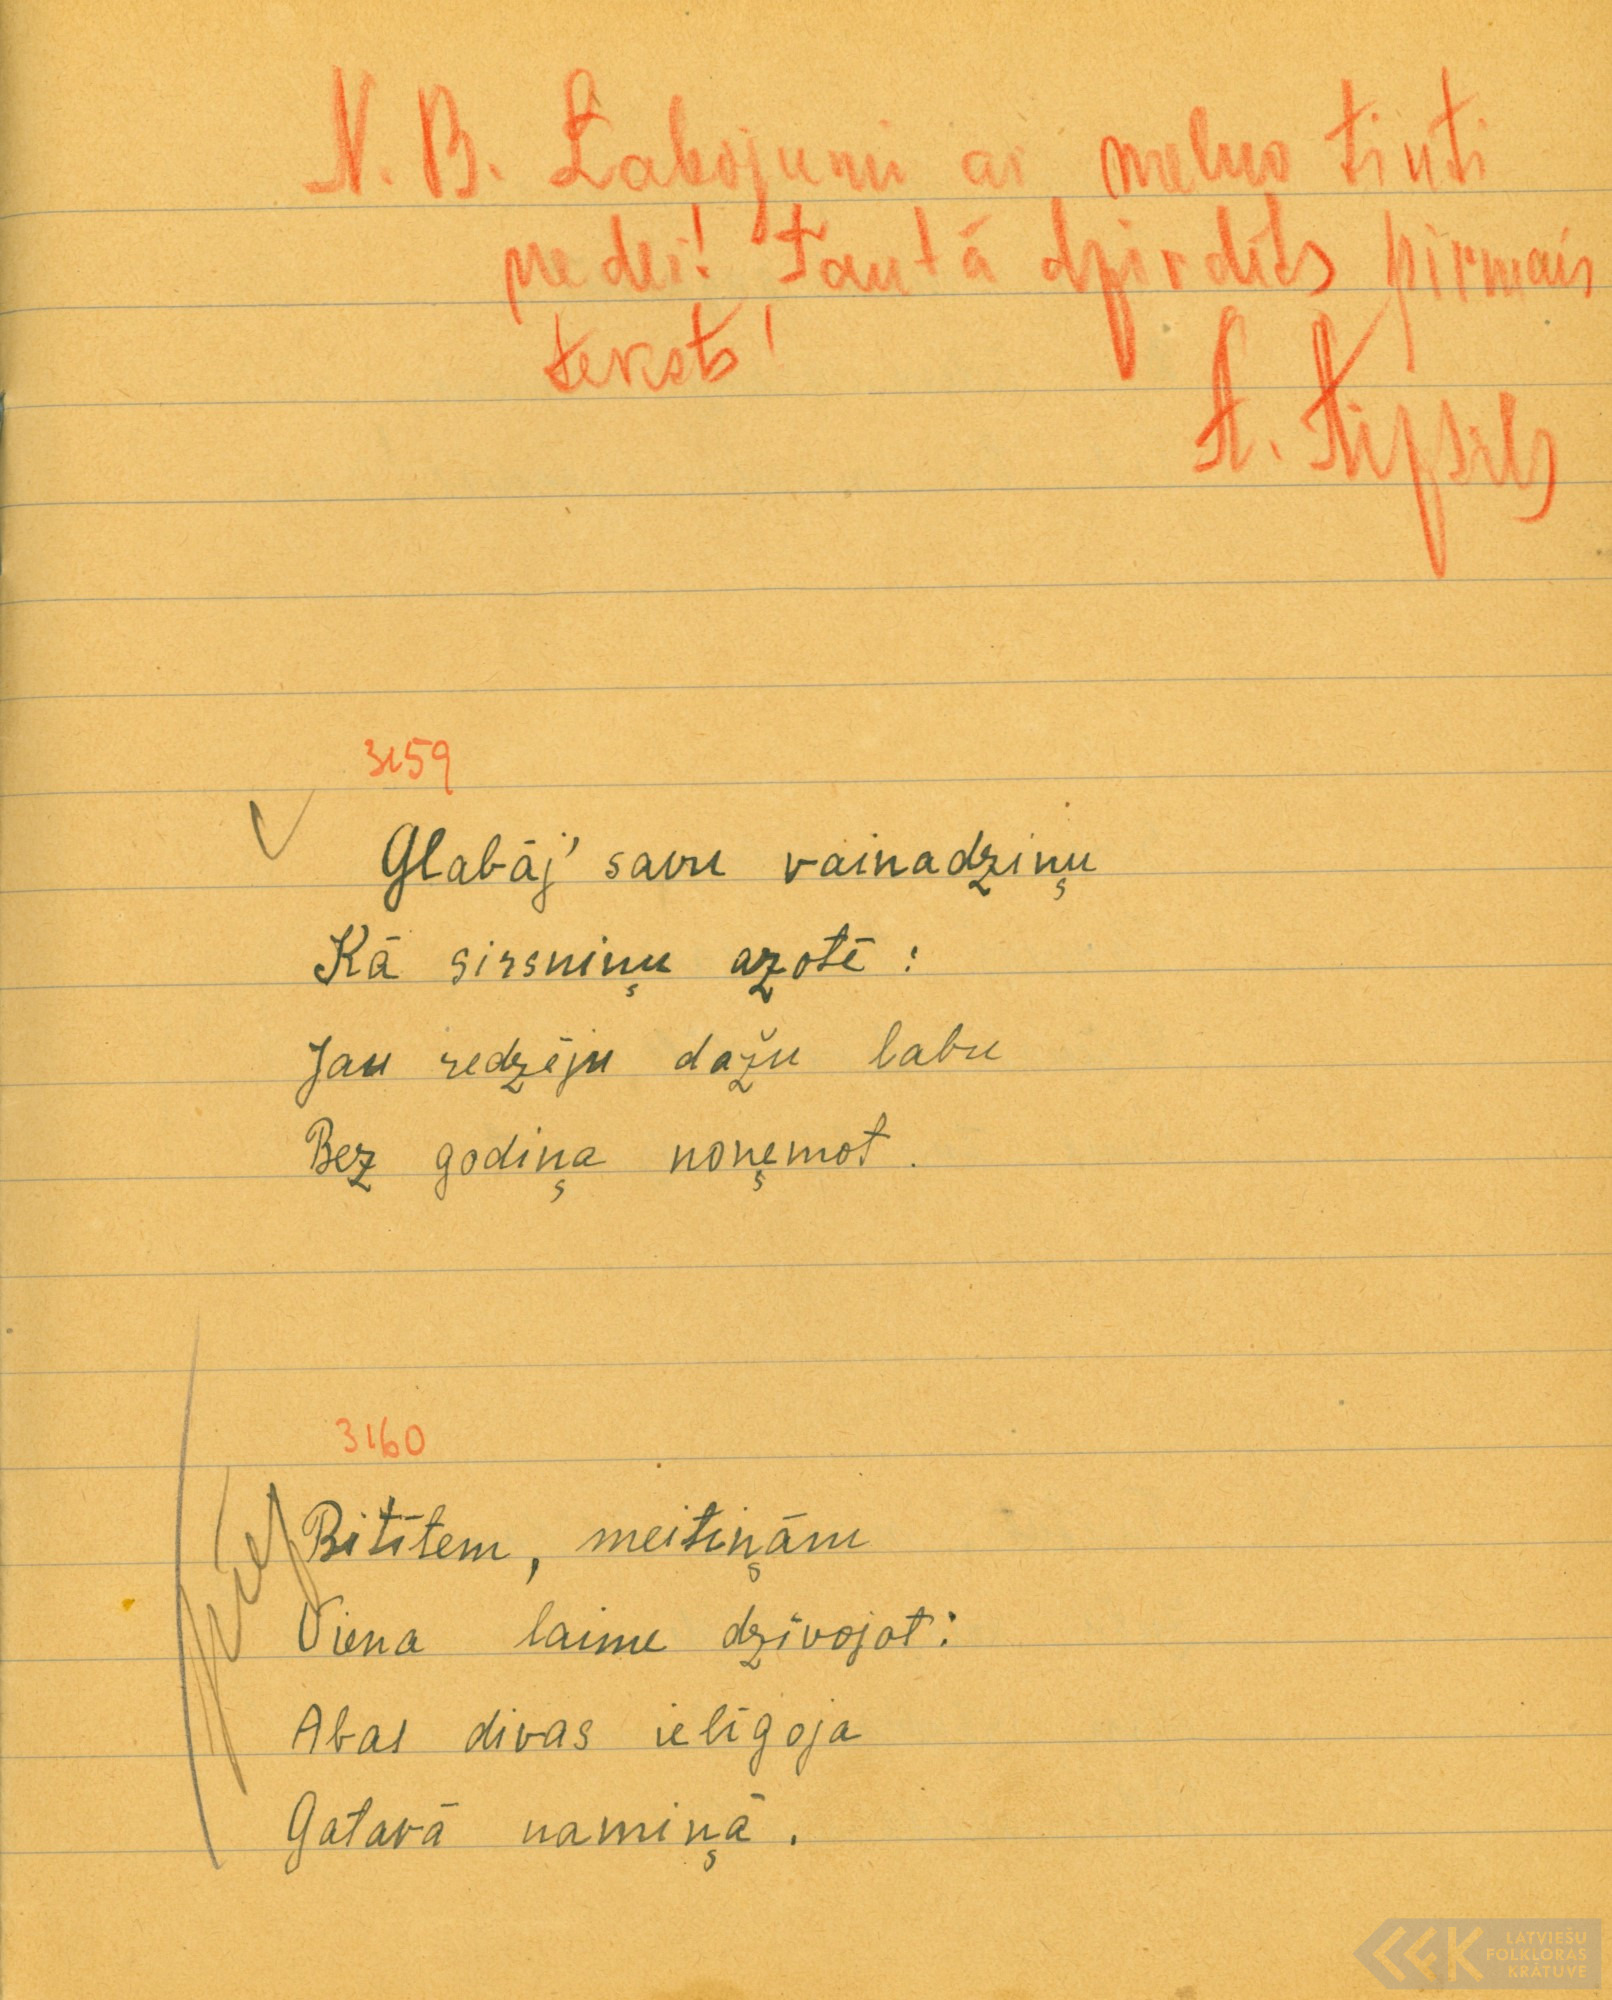 N. B. Labojumi ar melno tinti
neder! Tautā dzirdēts pirmais
teksts!
A.
3159
Glabāj' savu vainadziņu
Kā sirsniņu azotē:
Jau redzēju dažu labu
Bez godiņa noņemot.
3160
Bitītem, meitiņām
Viena laime dzīvojot:
Abas divas ielīgoja
Gatavā namiņā.
LATVIEŠU
FOLKLORAS
KRĀTUVE